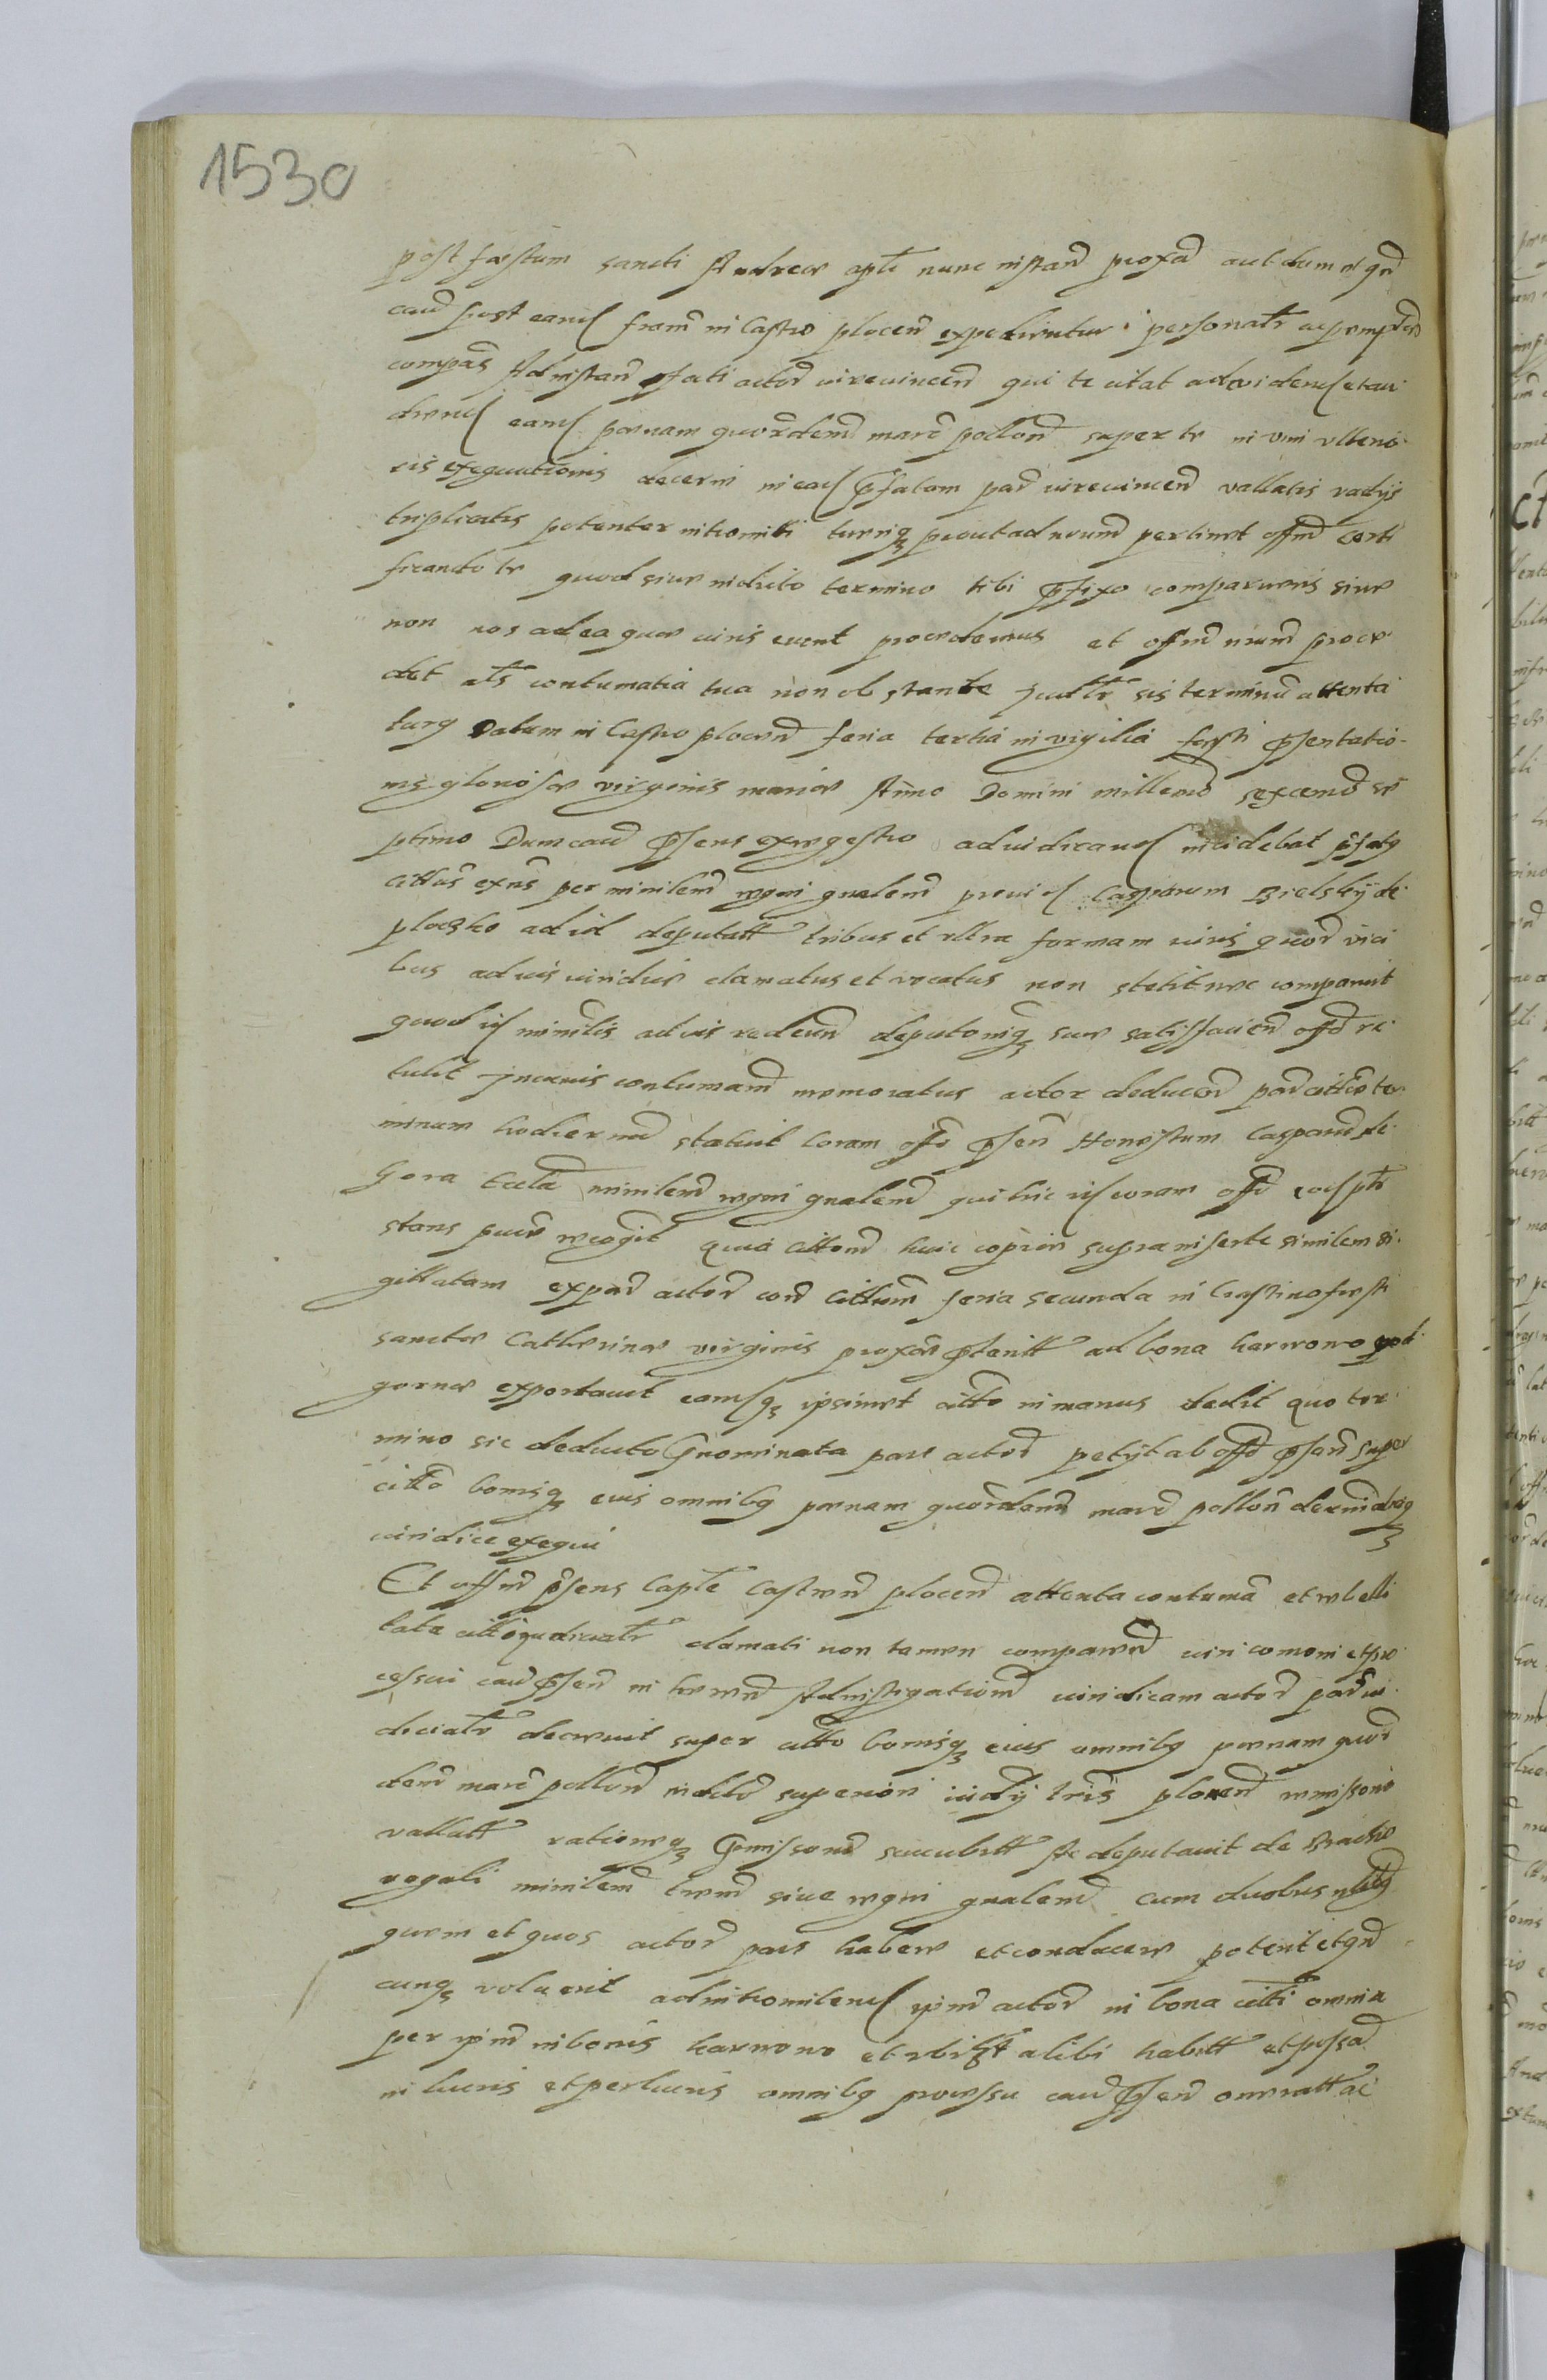 1530
post festum sancti Andreae apli nunc instan proxe aut dum et qn
cau post eand fram in Castro plocen expedirentur personalr ac peremptor
compas Ad instan pfati actor iurevincen qui te citat ad videnf et au
diend eand poenam quordem marc pollon super te in vim ulterio
ris exequutionis decerni in eaq pfatam par iurevincen vallatis vadys
triplicatis potenter intromitti turrią prout ad nrum pertinet offm Certi
ficando te quod siue in dicto termino tibi pfixo comparueris siue
non nos ad ea quae iuris erunt procedemus et offm nrum proce
det ats contumatia tua non obstante Judlr sis terminu attenta
turq Datum in Castro plocen feria tertia in vigilia festi psentatio
nis gloriosae virginis mariae Anno Domini millemo sexcenmo se
ptimo Dum cau psens ex regestro ad iudicand incidebat pfatq
citatus exns per minilem regni gnalem provid Casparum Bielsky de
plocsko ad id deputatt tribus et ultra formam iuris quor vici
bus ad ius iuridice clamatus et vocatus non stetit nec comparuit
quod id minilis ad ius redeun deputoniq suae satisfacien offo re
tulit In cuius contumam memoratus actor deducen par citte ter
minum hodiernu statuit Coram offo psen Honestum Casparu de
Gora minilem regni gnalem qui hic id coram offo eodp
stans pure recogit Quia citton huic copiae supra inserte similem si
gillatam ex par actor con Cittum feria secunda in Crastino festi
sanctae Catherinae virginis proxe pteritt ad bona karwowo pod
gorne exportavit eamq ipsimet citto in manus dedit Quo ter
mino sic deducto pnominata pars actor petyt ab offo psen super
citto bonisq eius omnibq poenam quordem marc pollon decerni
iuridice exequi
Et offm psens Caple Castren plocen attenta contuma et rebelli
tate citti iudicialr clamati non tamen comparen iuri comoni et pro
cessui cau psen in haeren Ad instigationem iuridicam actor par iu
dicialr decrevit super citto bonisq eius omnibq poenam quor
dem marc pollon in dicto superiori iudy tris plocen remissone
vallatt rationeq pmissone succubitt Ac deputavit de Brachio
regali minilem tren siue regni gnalem cum duobus nlibq
quem et quos actor pars habere et conducere poterit et qn
cunq voluerit ad intromitend ipm actor in bona citti omnia
per ipm in bonis karwowo et ubilt alibi habitt et possa
in lucris et perlucris omnibq processu cau psen oneratt ac